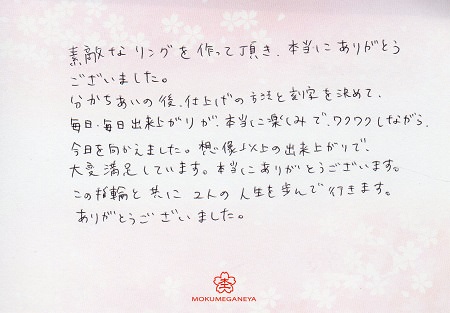 素敵なリングを作って頂き、本当にありがとう
ございました。
分かちあいの後、仕上げの方法と刻字を決めて、
毎日・毎日出来上がりが、本当に楽しみで、ワクワクしながら、
今日を向かえました。想像以上の出来上がりで、
大変満足しています。本当にありがとうございます。
この指輪と共に 2人の人生を歩んで行きます。
ありがとうございました。
MOKUMEGANEYA